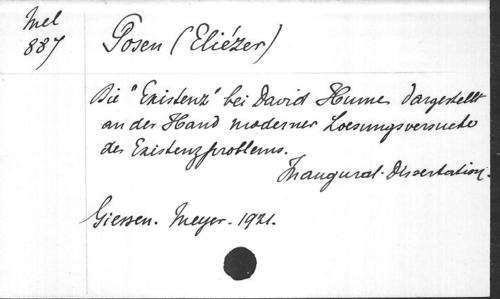 Mel
887
Posen (Eliézer)
Die "Existenz" bei David Hume, dargestellt
an der Hand moderner Loesungsversuche
des Existenzproblems.
Inaugural-Dissertation.
Giessen. Meyer. 1921.